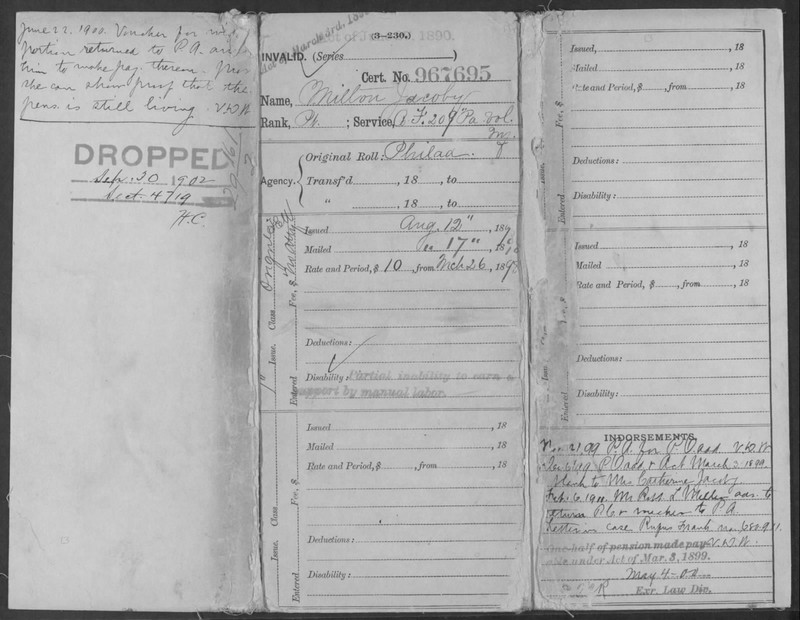 June 22, 1900. Voucher for
portion returned to P.A.
him to make pay. thereon.
she can show proof that the
pens. is still living. V.D.W.
DROPPED
Sep. 30 1902
Sect. 4719
H.C.
Act of 1890.
(3-230.)
INVALID. (Series )
Cert. No. 967695
Name, Milton Jacoby
Rank, Pt. ; Service, F. 209" Pa. Vol.
Agency. Original Roll: Philad
Transf'd , 18 , to
" , 18 , to
Issued Aug. 12" , 189
Mailed " 17" , 18
Rate and Period, $ 10 , from Mch. 26 , 189
Deductions:
Disability: Partial inability to earn a
support by manual labor.
Entered Issue. Class Fee, $
Issued , 18
Mailed , 18
Rate and Period, $ , from , 18
Deductions:
Disability:
Entered Issue. Class Fee, $
Issued, , 18
Mailed , 18
Rate and Period, $ , from , 18
Deductions:
Disability:
Entered Fee, $
Issued , 18
Mailed , 18
Rate and Period, $ , from , 18
Deductions:
Disability:
Entered Fee, $
INDORSEMENTS.
21, 99 P.A. for P.O. add. V.D.W.
P.O. add & Act March 3, 1899.
to Mrs. Catherine Jacoby
Feb. 6, 1900. Mr. Ross. L. adv. to
return & voucher to P.A.
case Rufus Frank no. 680.911.
One-half of pension made pay- V.D.W.
able under Act of Mar. 3, 1899.
May 4-02
Exr. Law Div.